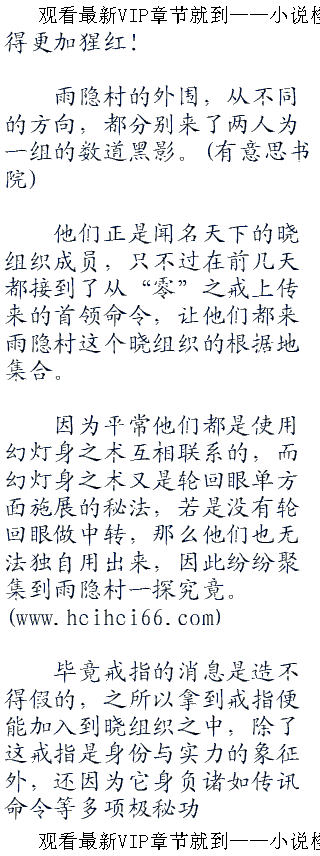 观看最新VIP章节就到——小说楼
得更加猩红！
雨隐村的外围，从不同
的方向，都分别来了两人为
一组的数道黑影。(有意思书
院)
他们正是闻名天下的晓
组织成员，只不过在前几天
都接到了从“零”之戒上传
来的首领命令，让他们都来
雨隐村这个晓组织的根据地
集合。
因为平常他们都是使用
幻灯身之术互相联系的，而
幻灯身之术又是轮回眼单方
面施展的秘法，若是没有轮
回眼做中转，那么他们也无
法独自用出来，因此纷纷聚
集到雨隐村一探究竟。
(www.hcihci66.com)
毕竟戒指的消息是造不
得假的，之所以拿到戒指便
能加入到晓组织之中，除了
这戒指是身份与实力的象征
外，还因为它身负诸如传讯
命令等多项极秘功
观看最新VIP章节就到——小说